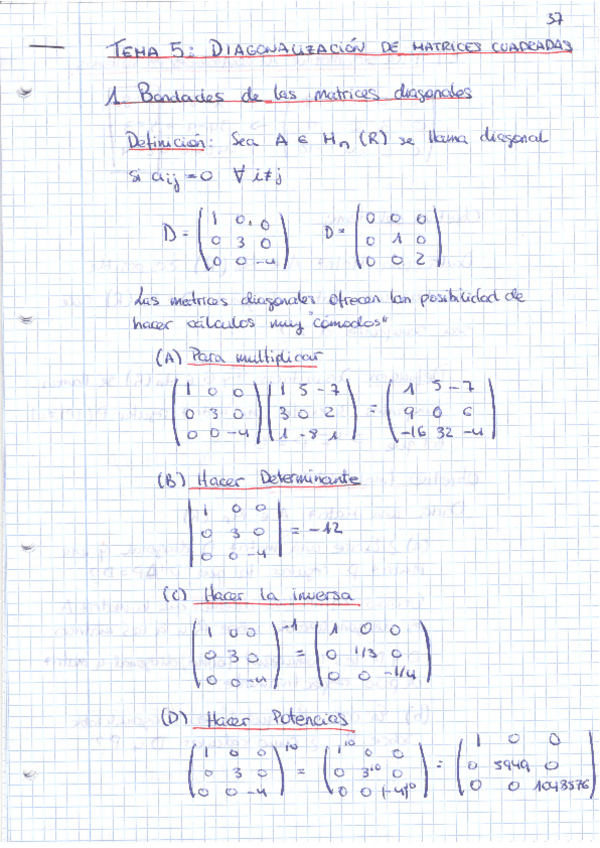 37
TEMA 5: DIAGONALIZACIÓN DE MATRICES CUADRADAS
1. Bondades de las matrices diagonales
Definición: Sea A ∈ Mn (R) se llama diagonal
si aij = 0 ∀ i≠j
D = (1 0, 0 / 0 3 0 / 0 0 -4) D = (0 0 0 / 0 1 0 / 0 0 2)
Las matrices diagonales ofrecen lan posibilidad de
hacer cálculos muy "cómodos"
(A) Para multiplicar
(1 0 0 / 0 3 0 / 0 0 -4) (1 5 -7 / 3 0 2 / 1 -8 1) = (1 5 -7 / 9 0 6 / -16 32 -4)
(B) Hacer Determinante
|1 0 0 / 0 3 0 / 0 0 -4| = -12
(C) Hacer la inversa
(1 0 0 / 0 3 0 / 0 0 -4)^-1 = (1 0 0 / 0 1/3 0 / 0 0 -1/4)
(D) Hacer Potencias
(1 0 0 / 0 3 0 / 0 0 -4)^10 = (1^10 0 0 / 0 3^10 0 / 0 0 (-4)^10) = (1 0 0 / 0 5949 0 / 0 0 1048576)